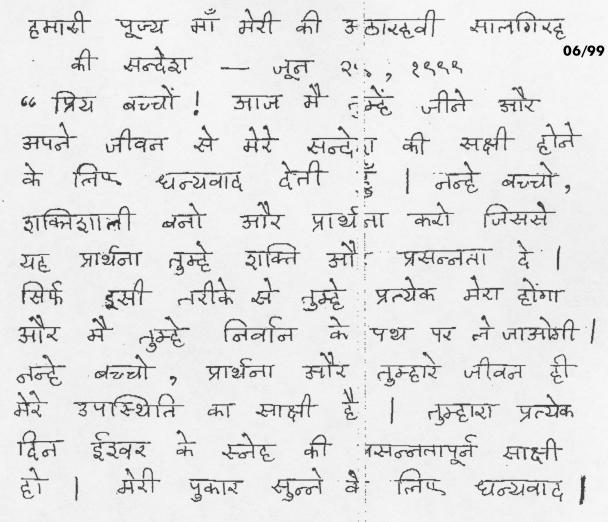 हमारी पूज्य माँ मेरी की अठारहवी सालगिरह
06/99
की सन्देश — जून २५, १९९९
“ प्रिय बच्चों ! आज मै तुम्हें जीने और
अपने जीवन से मेरे सन्देश की सक्षी होने
के लिए धन्यवाद देती हूँ | नन्हे बच्चो,
शक्तिशाली बनो और प्रार्थना करो जिससे
यह प्रार्थना तुम्हे शक्ति और प्रसन्नता दे |
सिर्फ इसी तरीके से तुम्हे प्रत्येक मेरा होंगा
और मै तुम्हे निर्वान के पथ पर ले जाओगी |
नन्हे बच्चो, प्रार्थना और तुम्हारे जीवन ही
मेरे उपस्थिति का साक्षी है | तुम्हारा प्रत्येक
दिन ईश्वर के स्नेह की प्रसन्नतापूर्न साक्षी
हो | मेरी पुकार सुन्ने के लिए धन्यवाद |